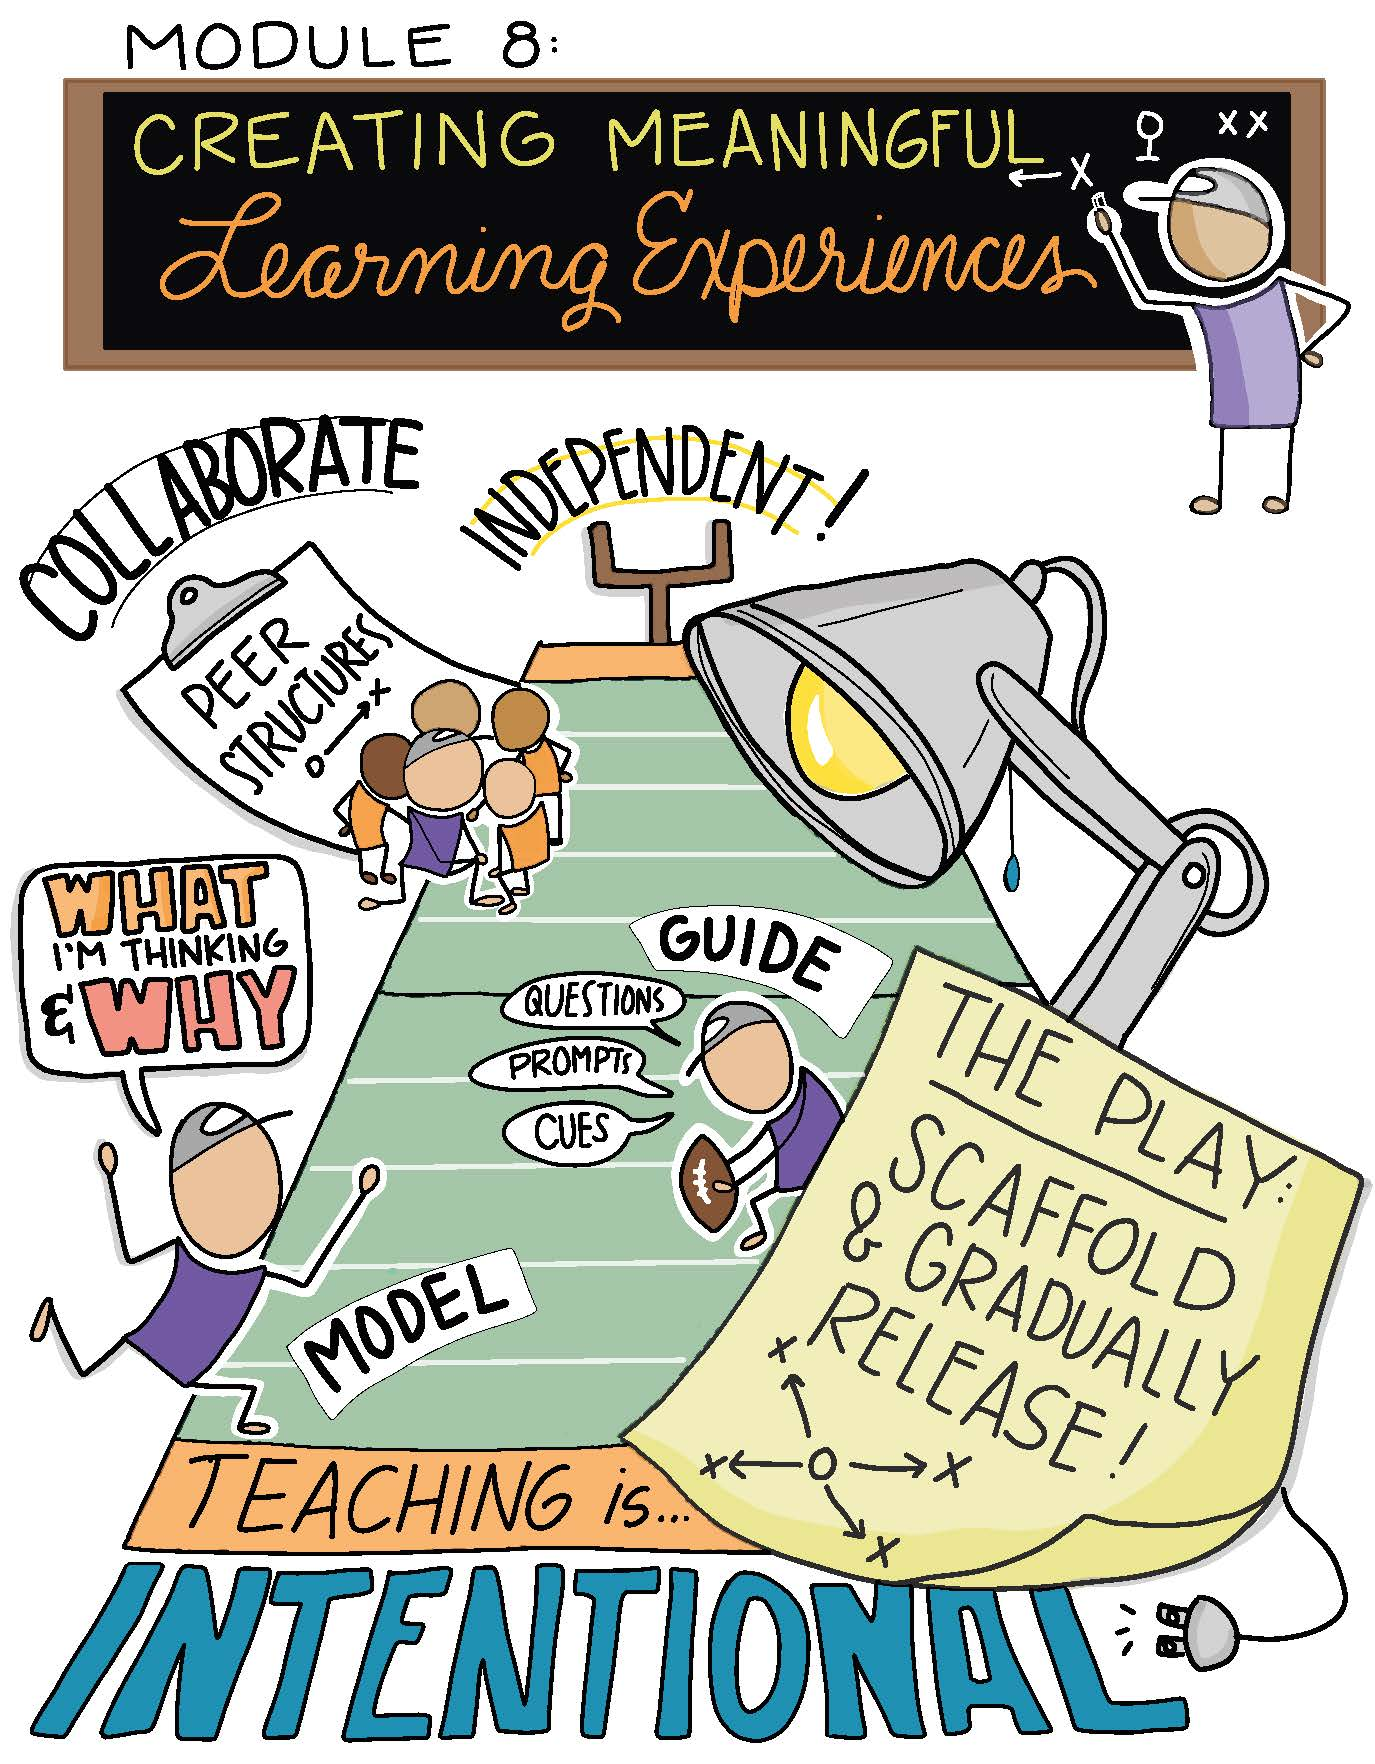 MODULE 8:
CREATING MEANINGFUL
Learning Experiences
X
XX
COLLABORATE
INDEPENDENT!
PEER
STRUCTURES
O X
WHAT
I'M THINKING
& WHY
GUIDE
QUESTIONS
PROMPTS
CUES
MODEL
THE PLAY:
SCAFFOLD
& GRADUALLY
RELEASE!
X
X O X
X
TEACHING is...
INTENTIONAL